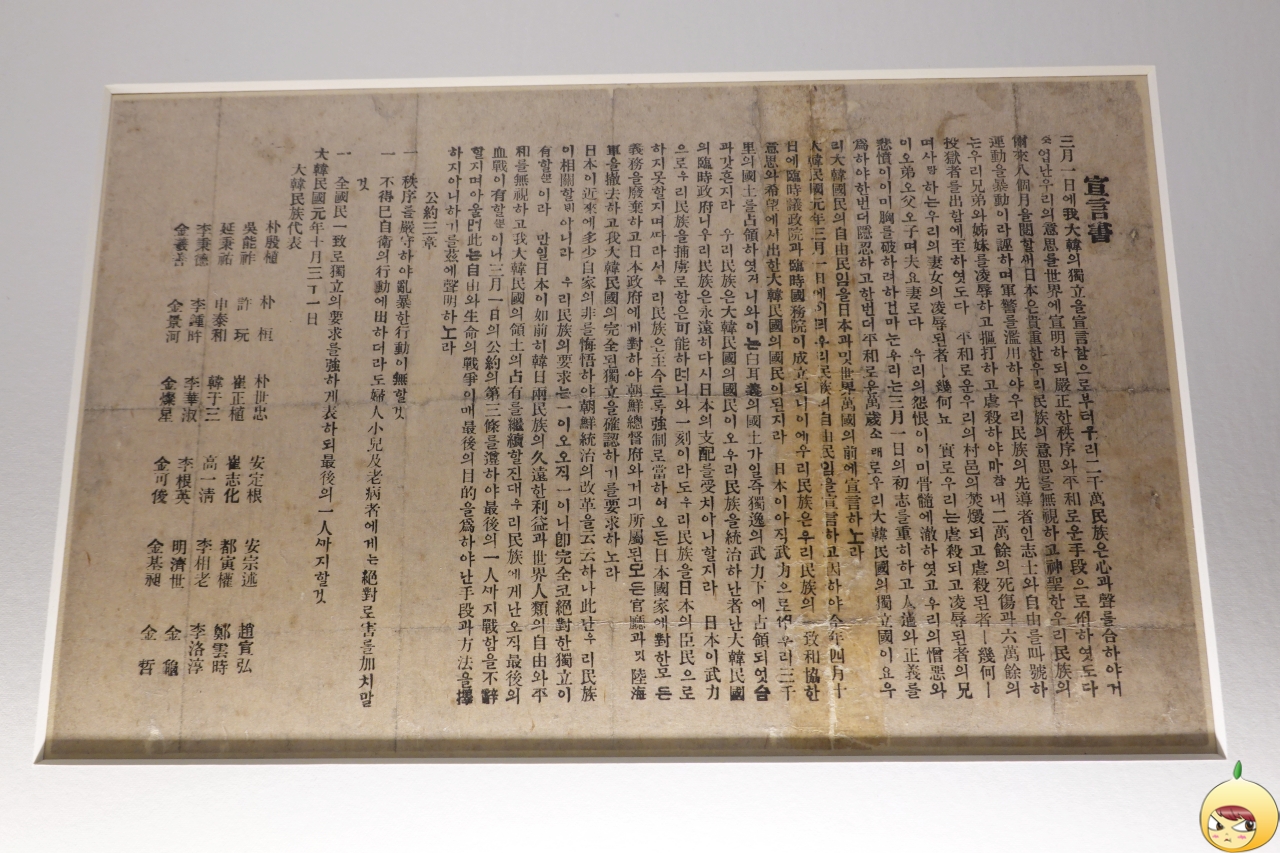 宣言書
三月一日에我大韓의獨立을宣言함으로부터우리二千萬民族은心과聲를合하야거
업난우리의意思를世界에宣明하되嚴正한秩序와平和로운手段으로써하엿도다
爾來八個月을閱할日本은貴重한우리民族의意思를無視하고神聖한우리民族의
運動을暴動이라誣하며軍警를濫用하야우리民族의先導者인志士와自由를叫號하
는우리兄弟와姊妹를凌辱하고搤打하고虐殺하야마참내二萬餘의死傷과六萬餘의
投獄者를出함에至하엿도다 平和로운우리의村邑의焚燬되고虐殺된者ㅣ幾何ㅣ
며사랑하는우리의妻女의凌辱된者ㅣ幾何뇨 實로우리는虐殺되고凌辱된者의兄
이오弟오父오子며夫요妻로다 우리의怨恨이이미骨髓에澈하엿고우리의憎惡와
悲憤이이미胸를破하려하건마는우리는三月一日의初志를重히하고人道와正義를
爲하야한번더隱忍하고한번더平和로운萬歲소래로우리大韓民國의獨立國이요우
리大韓國民의自由民임을日本과밋世界萬國의前에宣言하노라
大韓民國元年三月一日에우리民族의自由民임을宣言하고因하야今年四月十
日에臨時議政院과臨時國務院이成立되니이에우리民族은우리民族의一致和協한
意思와希望에서出한大韓民國의國民이된지라 日本이아직武力으로우리三千
里의國土를占領하엿거니와이는白耳義의國土가일즉獨逸의武力下에占領되엿슴
과갓흔지라 우리民族은大韓民國의國民이오우라民族을統治하난者난大韓民國
의臨時政府니우리民族은永遠히다시日本의支配를受치아니할지라 日本이武力
으로우리民族을捕虜로함은可能하려니와一刻이라도우리民族을日本의臣民으로
하지못할지며따라서우리民族은至今토록强制로當하여오든日本國家에對한모든
義務을廢棄하고日本政府에게對하야朝鮮總督府와거긔所屬된모든官廳과밋陸海
軍을撤去하고我大韓民國의完全된獨立을確認하기를要求하노라
日本이近來에多少自家의非를悔悟하야朝鮮統治의改革을云云하나此난우리民族
이相關할바아니라 우리民族의要求는一이오오직一이니卽完全코絕對한獨立이
有할뿐이라 만일日本이如前히韓日兩民族의久遠한利益과世界人類의自由와平
和를無視하고我大韓民國의領土의占有를繼續할진대우리民族에게난오직最後의
血戰이有할뿐이니三月一日의公約의第三條를遵하야最後의一人까지戰함을不辭
할지며아울너此는自由와生命의戰爭이매最後의目的을爲하야난手段과方法을擇
하지아니하기를玆에聲明하노라
公約三章
一 秩序를嚴守하야亂暴한行動이無할것
一 不得已自衛의行動에出하더라도婦人小兒及老病者에게는絕對로害를加치말
것
一 全國民一致로獨立의要求를强하게表하되最後의一人까지할것
大韓民國元年十月三十一日
大韓民族代表
朴殷植 朴桓 朴世忠 安定根 安宗述 趙宣弘
吳能祚 許玩 崔正植 崔志化 都寅權 鄭雲時
延秉祐 申泰和 韓于三 高一淸 李相老 李洛淳
李秉德 李謹 李華淑 李根英 明濟世 金龜
金義善 金景河 金燦星 金可俊 金基昶 金哲